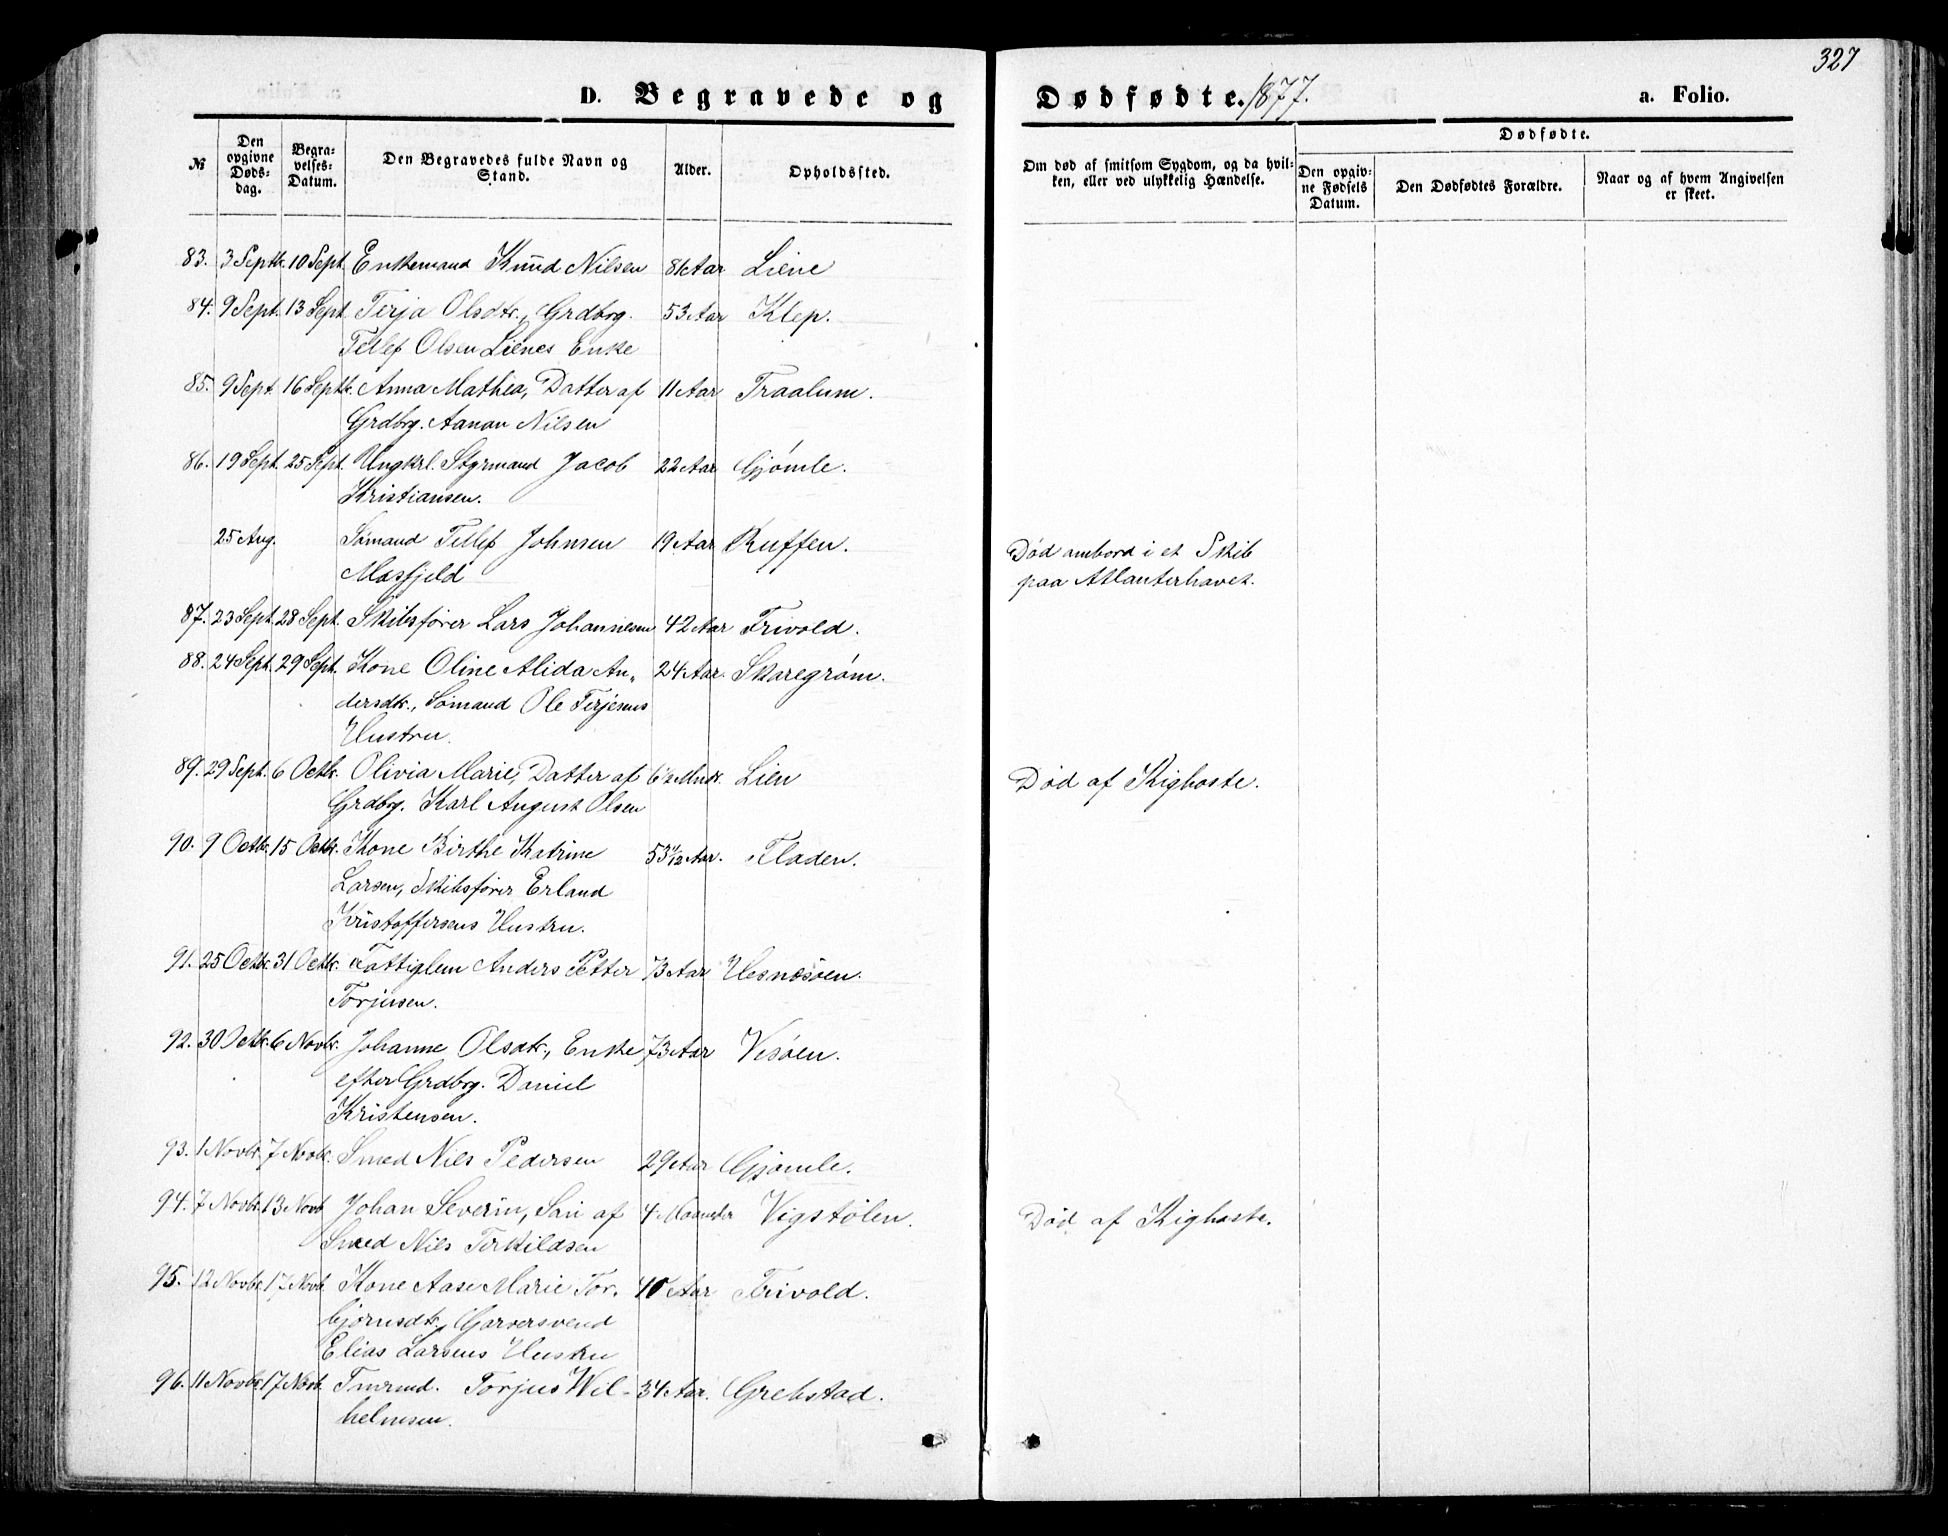 327
D. Begravede og Dødfødte. 1877. a. Folio.
№
Den opgivne Døds-dag.
Begra-velses-Datum.
Den Begravedes fulde Navn og Stand.
Alder.
Opholdssted.
Om død af smitsom Sygdom, og da hvil-ken, eller ved ulykkelig Hændelse.
Dødfødte.
Den opgiv-ne Fødsels Datum.
Den Dødfødtes Forældre.
Naar og af hvem Angivelsen er skeet.
83. 3 Septb. 10 Sept. Enkemand Knud Nilsen 81 Aar Liene
84. 9 Sept. 13 Sept. Terja Olsdtr., Grdbrg. 53 Aar Klep.
Tellef Olsen Lienes Enke
85. 9 Sept. 16 Septb. Anna Mathea, Datter af 11 Aar Traalum.
Grdbrg. Aanon Nilsen
86. 19 Sept. 25 Sept. Ungkrl. Styrmand Jacob 22 Aar Gjømle.
Kristiansen.
25 Aug. Sømand Tellef Johnsen 19 Aar Ruffen. Død ombord i et Skib
Mosfjeld paa Atlanterhavet.
87. 23 Sept. 28 Sept. Skibsfører Lars Johannesen 42 Aar Frivold.
88. 24 Sept. 29 Sept. Kone Oline Alida An„ 24 Aar. Skaregrøm.
dersdtr., Sømand Ole Terjesens
Hustru.
89. 29 Sept. 6 Octb. Olivia Marie, Datter af 6½ Mndr. Lien Død af Kighoste.
Grdbrg. Karl August Olsen
90. 9 Octb. 15 Octb. Kone Birthe Katrine 53 11/12 Aar. Fladen.
Larsen, Skibsfører Erland
Kristoffersens Hustru.
91. 25 Octb. 31 Octb. Fattiglem Anders Petter 73 Aar Hesnæsøen.
Torjusen.
92. 30 Octb. 6 Novb. Johanne Olsdtr., Enke 73 Aar Vesøen.
efter Grdbrg. Daniel
Kristensen.
93. 1 Novb. 7 Novb. Smed Nils Pedersen 29 Aar Gjømle.
94. 7 Novb. 13 Novb Johan Severin, Søn af 4 Maaneder Vigstølen. Død af Kighoste.
Smed Nils Terkildsen
95. 12 Novb. 17 Novb Kone Aase Marie Tor. 40 Aar Frivold.
bjørnsdtr., Garversvend
Elias Larsens Hustru
96. 11 Novb. 17 Novb. Tmrmd. Torjus Wil- 34 Aar. Grefstad.
helmsen.